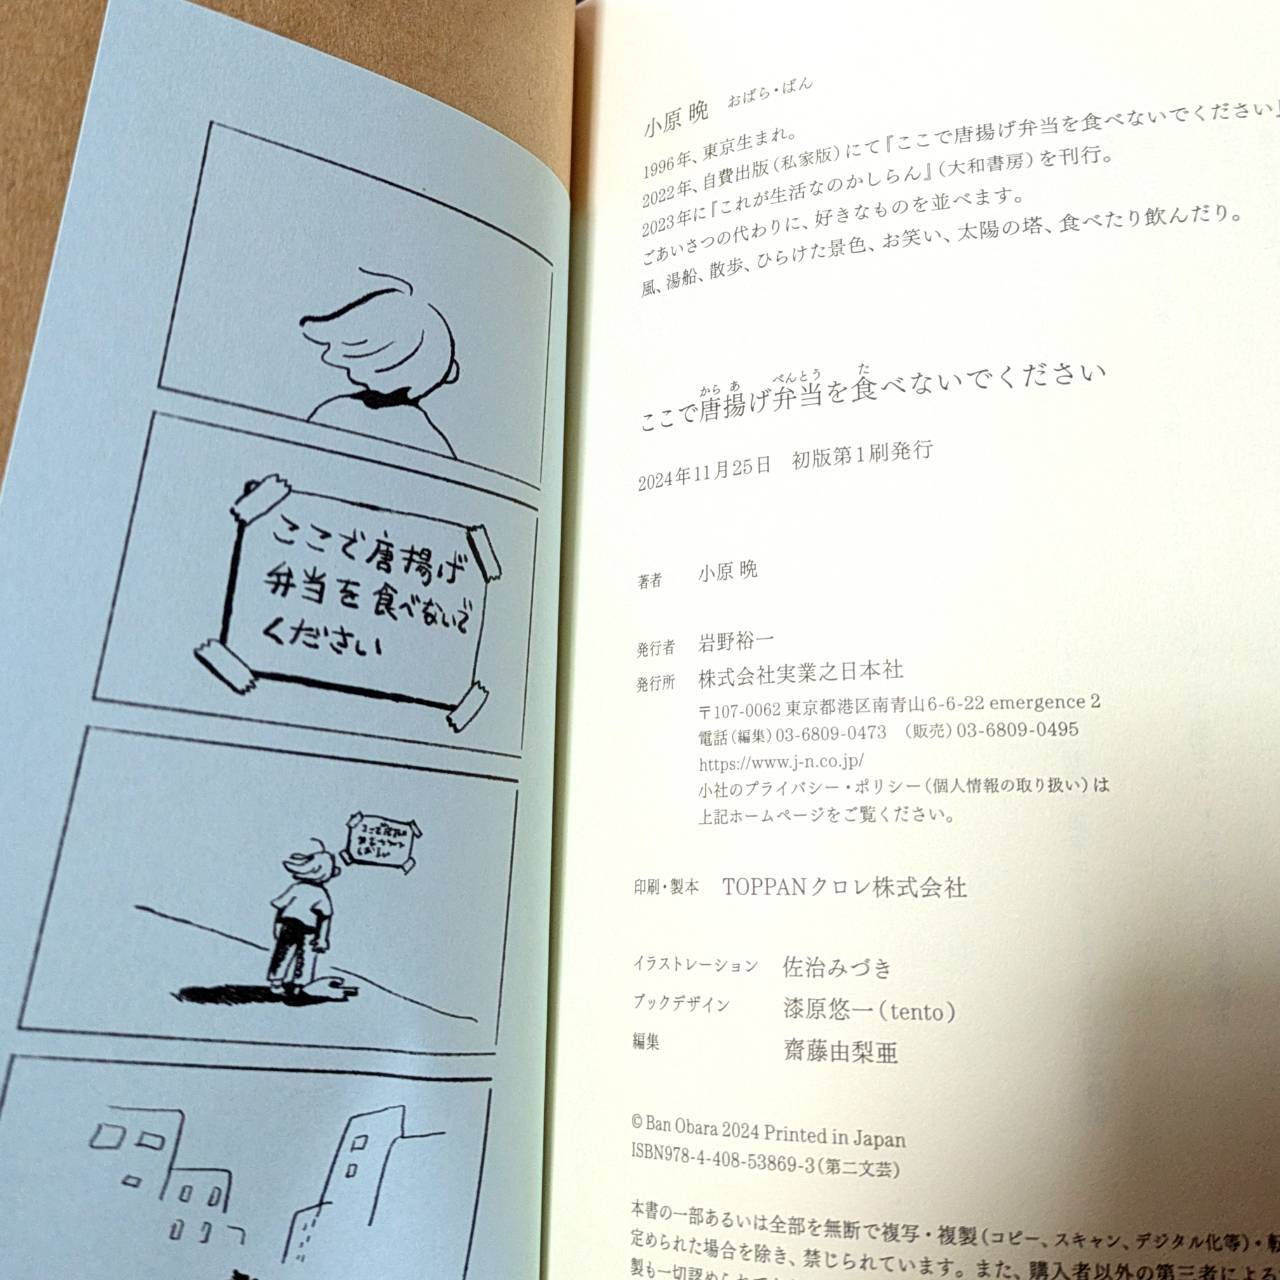 ここで唐揚げ
弁当を食べないで
ください
小原 晩 おばら・ばん
1996年、東京生まれ。
2022年、自費出版（私家版）にて『ここで唐揚げ弁当を食べないでください』
2023年に『これが生活なのかしらん』（大和書房）を刊行。
ごあいさつの代わりに、好きなものを並べます。
風、湯船、散歩、ひらけた景色、お笑い、太陽の塔、食べたり飲んだり。
から あ べんとう た
ここで唐揚げ弁当を食べないでください
2024年11月25日 初版第1刷発行
著者 小原 晩
発行者 岩野裕一
発行所 株式会社実業之日本社
〒107-0062 東京都港区南青山6-6-22 emergence 2
電話（編集）03-6809-0473 （販売）03-6809-0495
https://www.j-n.co.jp/
小社のプライバシー・ポリシー（個人情報の取り扱い）は
上記ホームページをご覧ください。
印刷・製本 TOPPANクロレ株式会社
イラストレーション 佐治みづき
ブックデザイン 漆原悠一（tento）
編集 齋藤由梨亜
© Ban Obara 2024 Printed in Japan
ISBN978-4-408-53869-3（第二文芸）
本書の一部あるいは全部を無断で複写・複製（コピー、スキャン、デジタル化等）・転
定められた場合を除き、禁じられています。また、購入者以外の第三者による
製も一切認められて